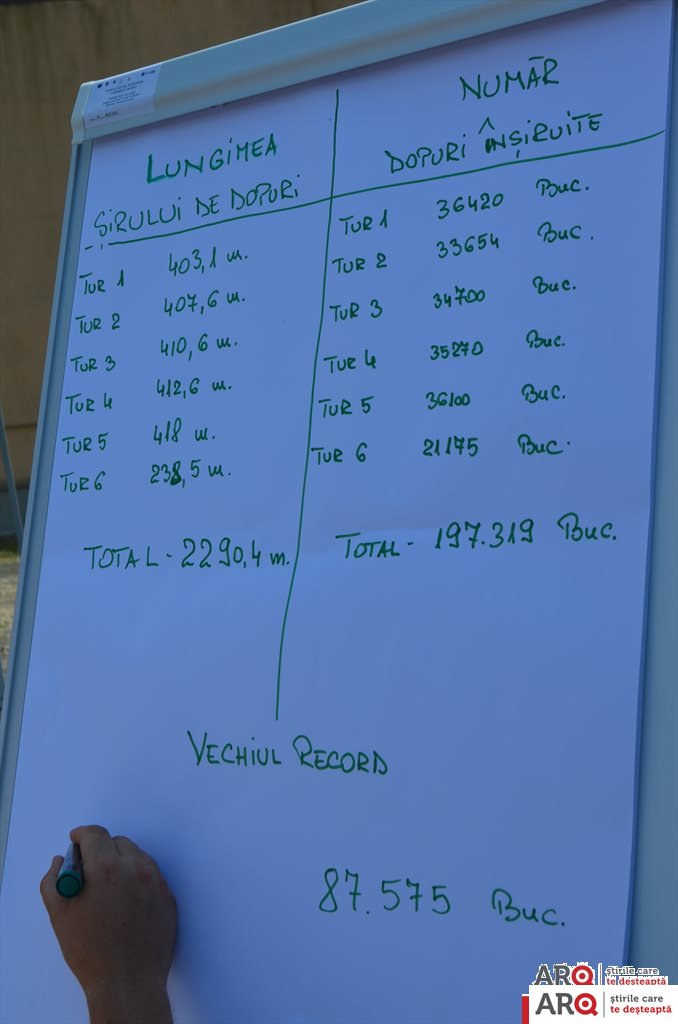 LUNGIMEA
ȘIRULUI DE DOPURI
TUR 1 403,1 m.
TUR 2 407,6 m.
TUR 3 410,6 m.
TUR 4 412,6 m.
TUR 5 418 m.
TUR 6 238,5 m.
TOTAL - 2290,4 m.
NUMĂR
DOPURI ÎNȘIRUITE
TUR 1 36420 BUC.
TUR 2 33654 BUC.
TUR 3 34700 BUC.
TUR 4 35270 BUC.
TUR 5 36100 BUC.
TUR 6 21175 BUC.
TOTAL - 197.319 BUC.
VECHIUL RECORD
87.575 BUC.
ARQ știrile care
te deșteaptă
ARQ știrile care
te deșteaptă